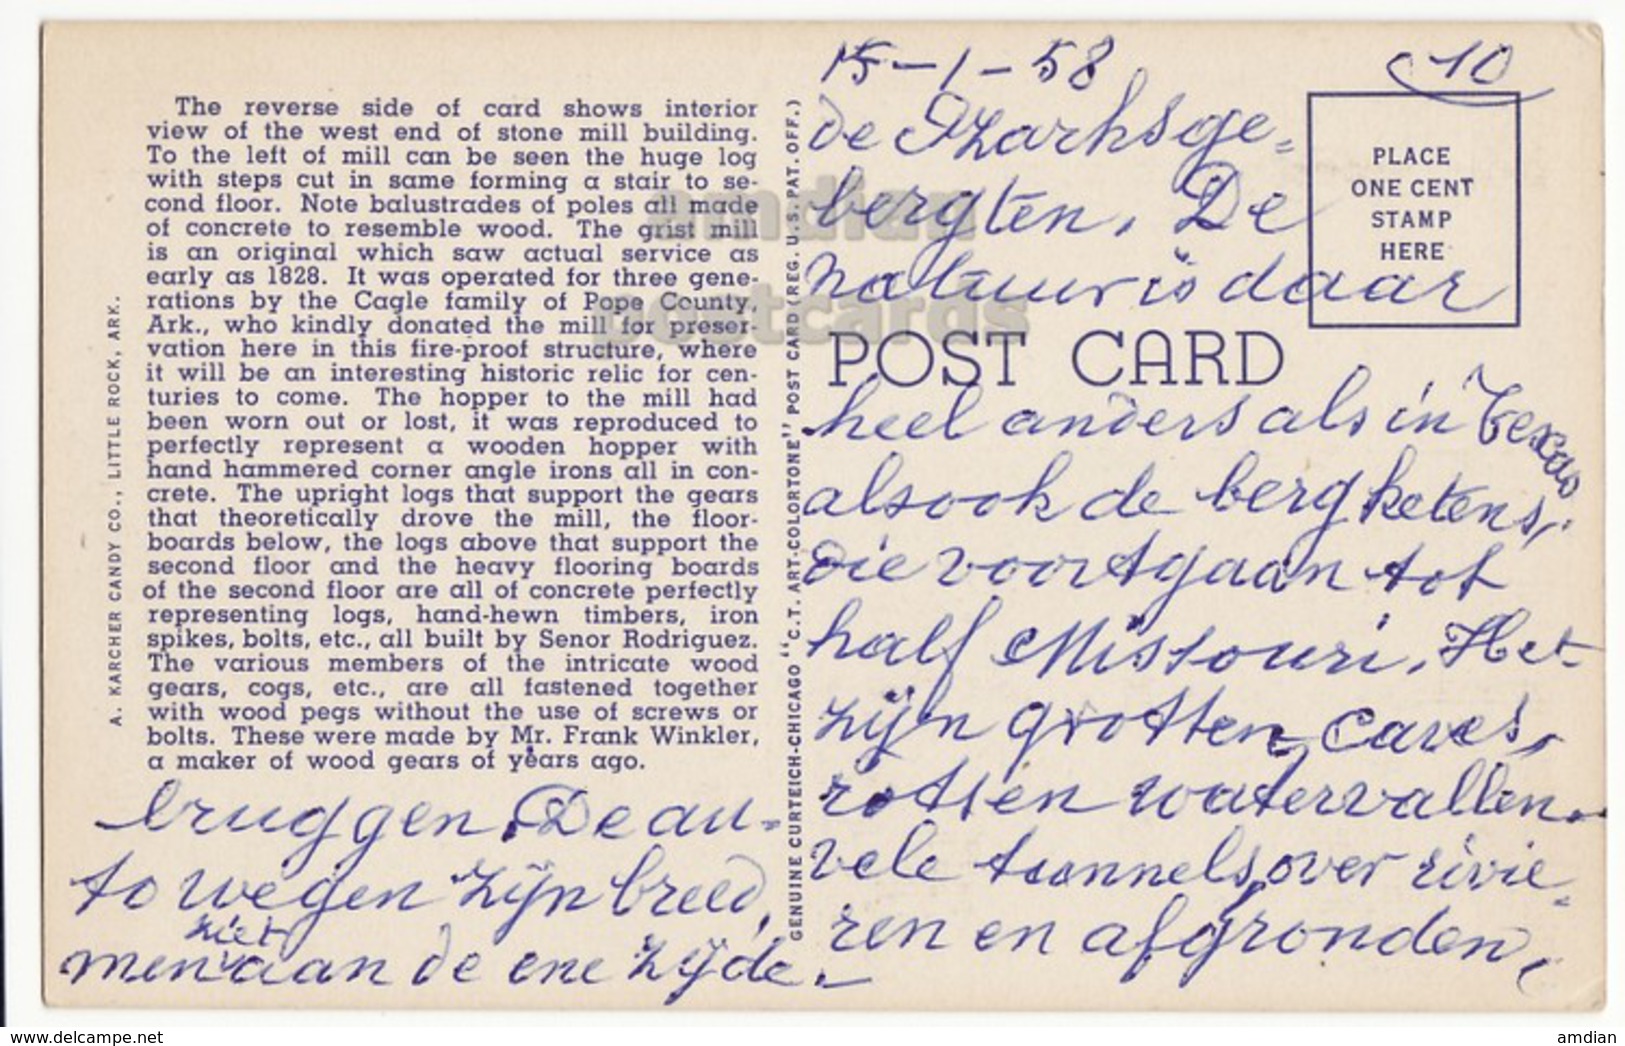 The reverse side of card shows interior
view of the west end of stone mill building.
To the left of mill can be seen the huge log
with steps cut in same forming a stair to se-
cond floor. Note balustrades of poles all made
of concrete to resemble wood. The grist mill
is an original which saw actual service as
early as 1828. It was operated for three gene-
rations by the Cagle family of Pope County,
Ark., who kindly donated the mill for preser-
vation here in this fire-proof structure, where
it will be an interesting historic relic for cen-
turies to come. The hopper to the mill had
been worn out or lost, it was reproduced to
perfectly represent a wooden hopper with
hand hammered corner angle irons all in con-
crete. The upright logs that support the gears
that theoretically drove the mill, the floor-
boards below, the logs above that support the
second floor and the heavy flooring boards
of the second floor are all of concrete perfectly
representing logs, hand-hewn timbers, iron
spikes, bolts, etc., all built by Senor Rodriguez.
The various members of the intricate wood
gears, cogs, etc., are all fastened together
with wood pegs without the use of screws or
bolts. These were made by Mr. Frank Winkler,
a maker of wood gears of years ago.
A. KARCHER CANDY CO., LITTLE ROCK, ARK.
GENUINE CURTEICH-CHICAGO "C.T. ART-COLORTONE" POST CARD (REG. U.S. PAT. OFF.)
10
PLACE
ONE CENT
STAMP
HERE
POST CARD
15-1-58
de Ozarksge=
bergten. De
natuur is daar
heel anders als in Texas
alsook de bergketens,
die voortgaan tot
half Missouri. Het
zijn grotten, caves,
rotsen watervallen.
vele tunnels, over rivie=
ren en afgronden,
bruggen. De au=
to wegen zijn breed,
men ziet aan de ene zijde.-
amdian
postcards
https://www.delcampe.net
amdian